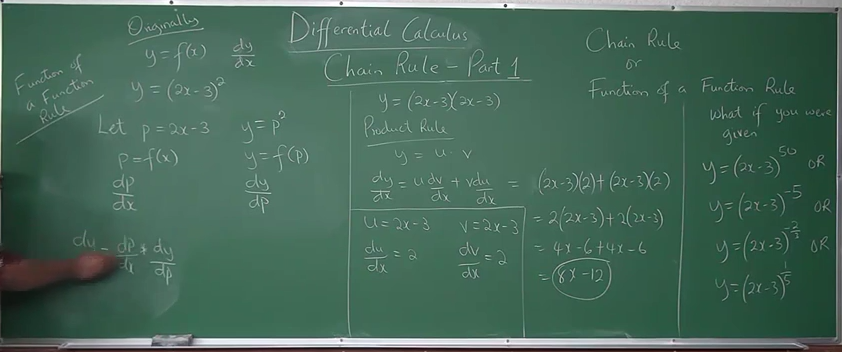 Differential Calculus
Chain Rule - Part 1
Originally
y = f(x) dy/dx
y = (2x-3)²
Function of
a Function
Rule
Let p = 2x-3 y = p²
p = f(x) y = f(p)
dp/dx dy/dp
dy = dp/dx * dy/dp
y = (2x-3)(2x-3)
Product Rule
y = u · v
dy/dx = u dv/dx + v du/dx = (2x-3)(2) + (2x-3)(2)
= 2(2x-3) + 2(2x-3)
= 4x-6+4x-6
= 8x-12
u = 2x-3 v = 2x-3
du/dx = 2 dv/dx = 2
Chain Rule
or
Function of a Function Rule
What if you were
given
y = (2x-3)^50 OR
y = (2x-3)^-5 OR
y = (2x-3)^-2/3 OR
y = (2x-3)^1/5